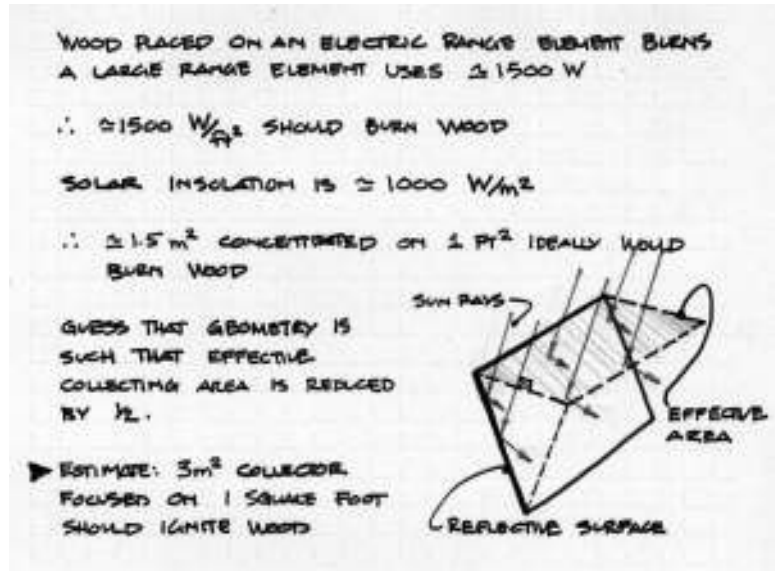 WOOD PLACED ON AN ELECTRIC RANGE ELEMENT BURNS
A LARGE RANGE ELEMENT USES ≃ 1500 W
∴ ≃1500 W/ft² SHOULD BURN WOOD
SOLAR INSOLATION IS ≃ 1000 W/m²
∴ ≃ 1.5 m² CONCENTRATED ON 1 FT² IDEALLY WOULD
BURN WOOD
GUESS THAT GEOMETRY IS
SUCH THAT EFFECTIVE
COLLECTING AREA IS REDUCED
BY 1/2.
► ESTIMATE: 3m² COLLECTOR
FOCUSED ON 1 SQUARE FOOT
SHOULD IGNITE WOOD
SUN RAYS
EFFECTIVE
AREA
REFLECTIVE SURFACE